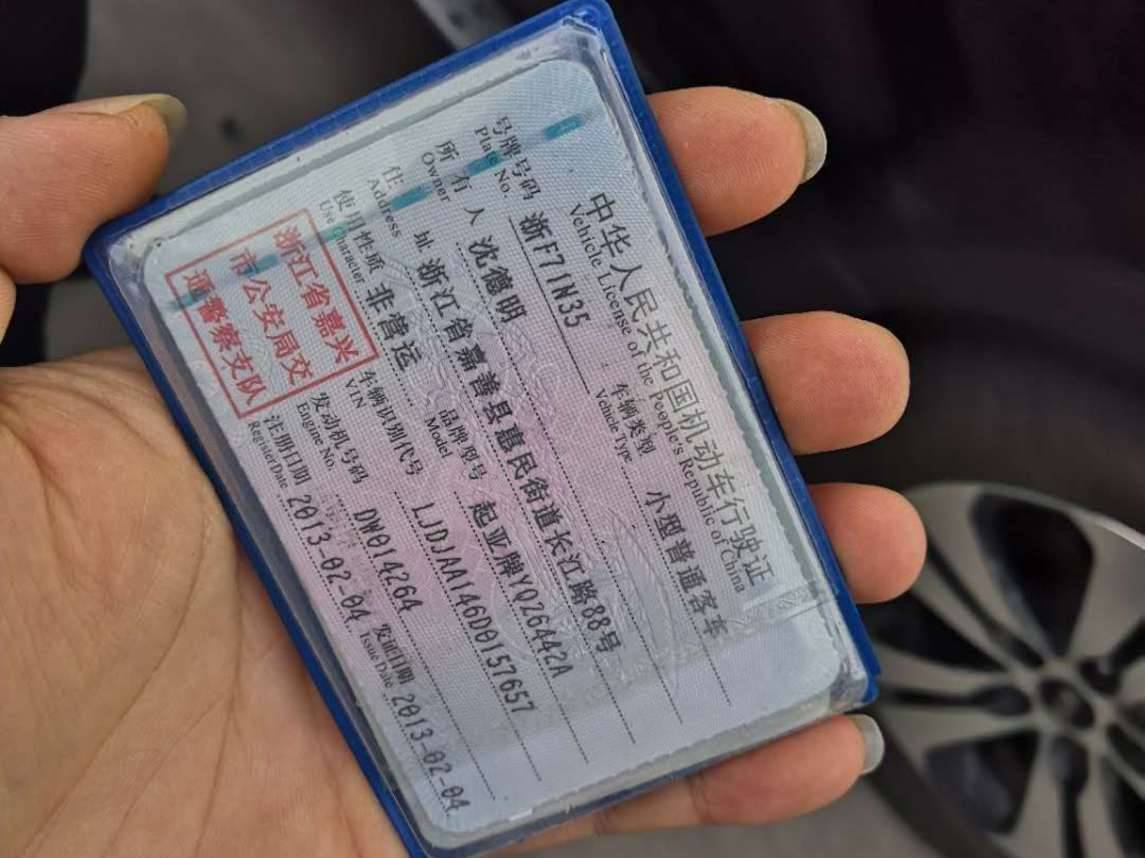 中华人民共和国机动车行驶证
Vehicle License of the People's Republic of China
号牌号码 浙F71N35 车辆类型 小型普通客车
Plate No. Vehicle Type
所有人 沈德明
Owner
住址 浙江省嘉善县惠民街道长江路88号
Address
使用性质 非营运 品牌型号 起亚牌YQZ6442A
Use Character Model
浙江省嘉兴
市公安局交
通警察支队
车辆识别代号 LJDJAA146D0157657
VIN
发动机号码 DW014264
Engine No.
注册日期 2013-02-04 发证日期 2013-02-04
Register Date Issue Date